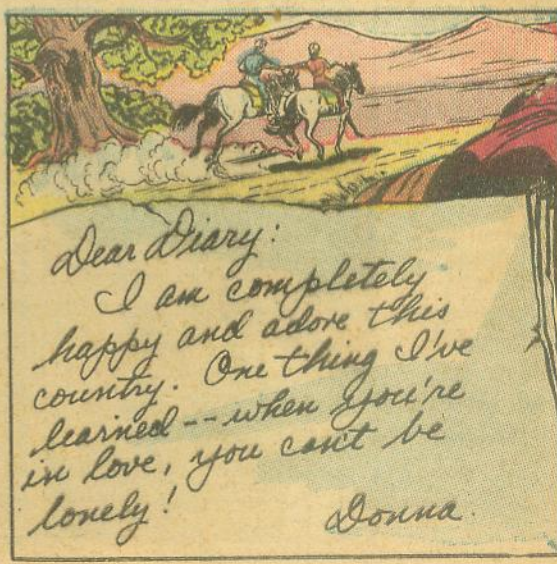 Dear Diary:
I am completely
happy and adore this
country. One thing I've
learned -- when you're
in love, you can't be
lonely!
Donna.